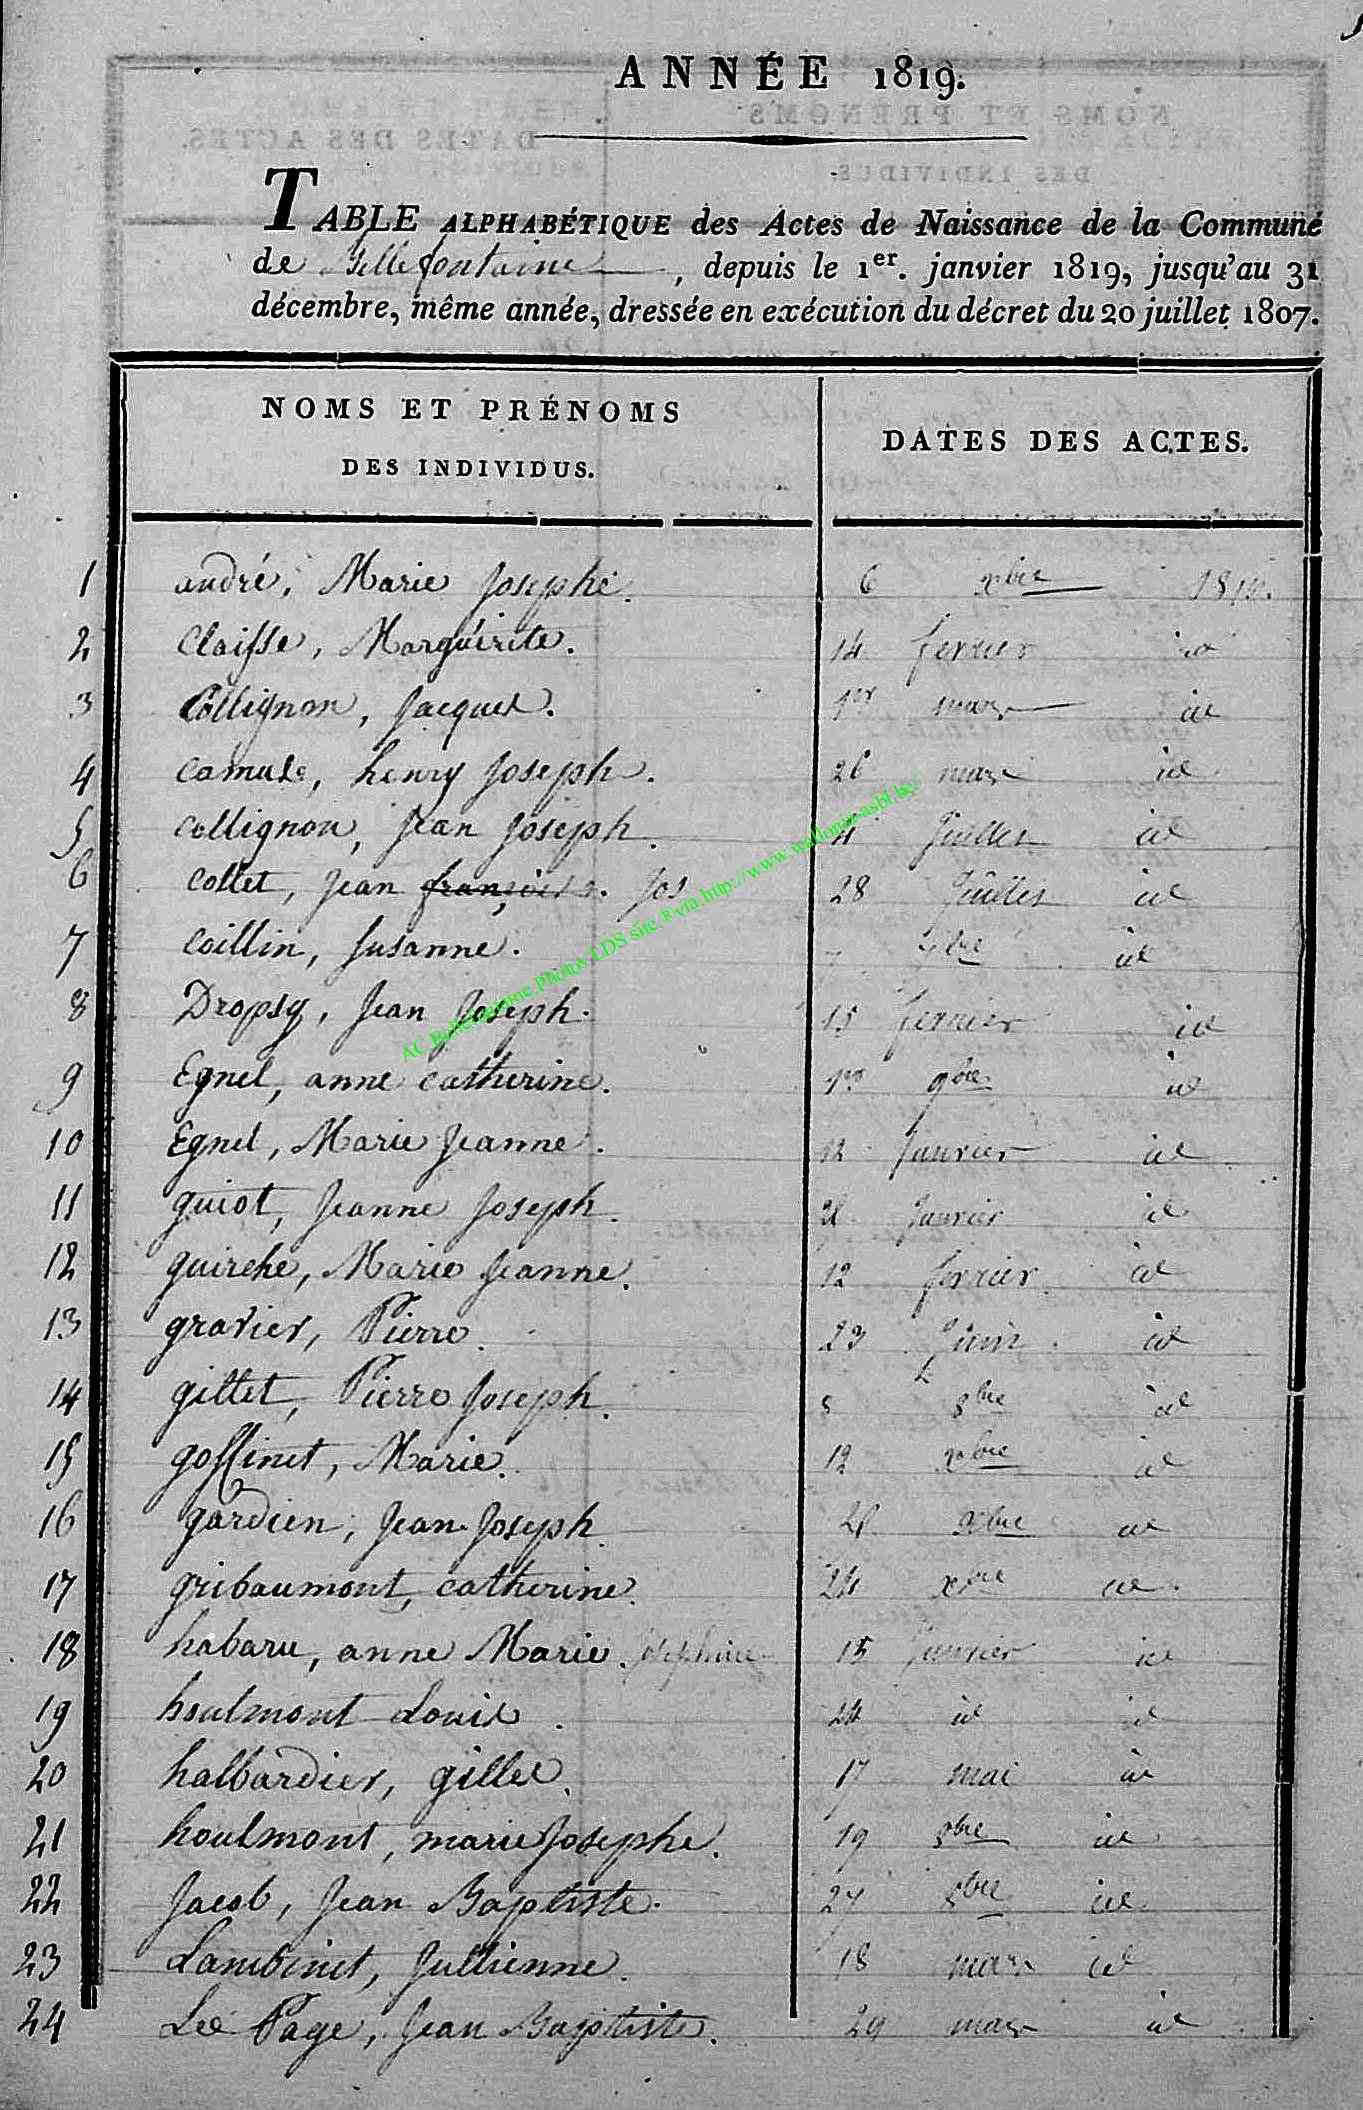 ANNÉE 1819.
TABLE ALPHABÉTIQUE des Actes de Naissance de la Commune
de Bellefontaine, depuis le 1er. janvier 1819, jusqu'au 31
décembre, même année, dressée en exécution du décret du 20 juillet 1807.
NOMS ET PRÉNOMS
DES INDIVIDUS.
DATES DES ACTES.
1 andré, Marie Josephe. 6 xbre 1819.
2 Claisse, Marguirite. 14 fevrier id
3 Collignon, Jacques. 1er mars id
4 camus, henry Joseph. 26 mars id
5 collignon, Jean Joseph. 4 Juillet id
6 collet, Jean françois. Jos 28 Juillet id
7 coillin, Susanne. id
8 Dropsy, Jean Joseph. 15 fevrier id
9 Egnel, anne catherine. 1er 9bre id
10 Egnel, Marie Jeanne. 12 Janvier id
11 guiot, Jeanne Joseph. Janvier id
12 guirche, Marie Jeanne. 12 fevrier id
13 gravier, Pierre. 23 Juin id
14 gillet, Pierre Joseph. 8bre id
15 goffinet, Marie. 12 xbre id
16 gardien, Jean Joseph xbre id
17 gribaumont, catherine. 24 xbre id.
18 habaru, anne Marie. Josephine 15 Janvier id
19 houlmont Louis. 24 id id
20 halbardier, gilles. 17 mai id
21 houlmont, marie Josephe. 19 8bre id
22 Jacob, Jean Baptiste. 27 8bre id.
23 Lambinet, Jullienne. 18 mars id
24 Le Page, Jean Baptiste. 29 mars id
AC Bellefontaine Photos LDS site R via http://www.wallonia-asbl.be/